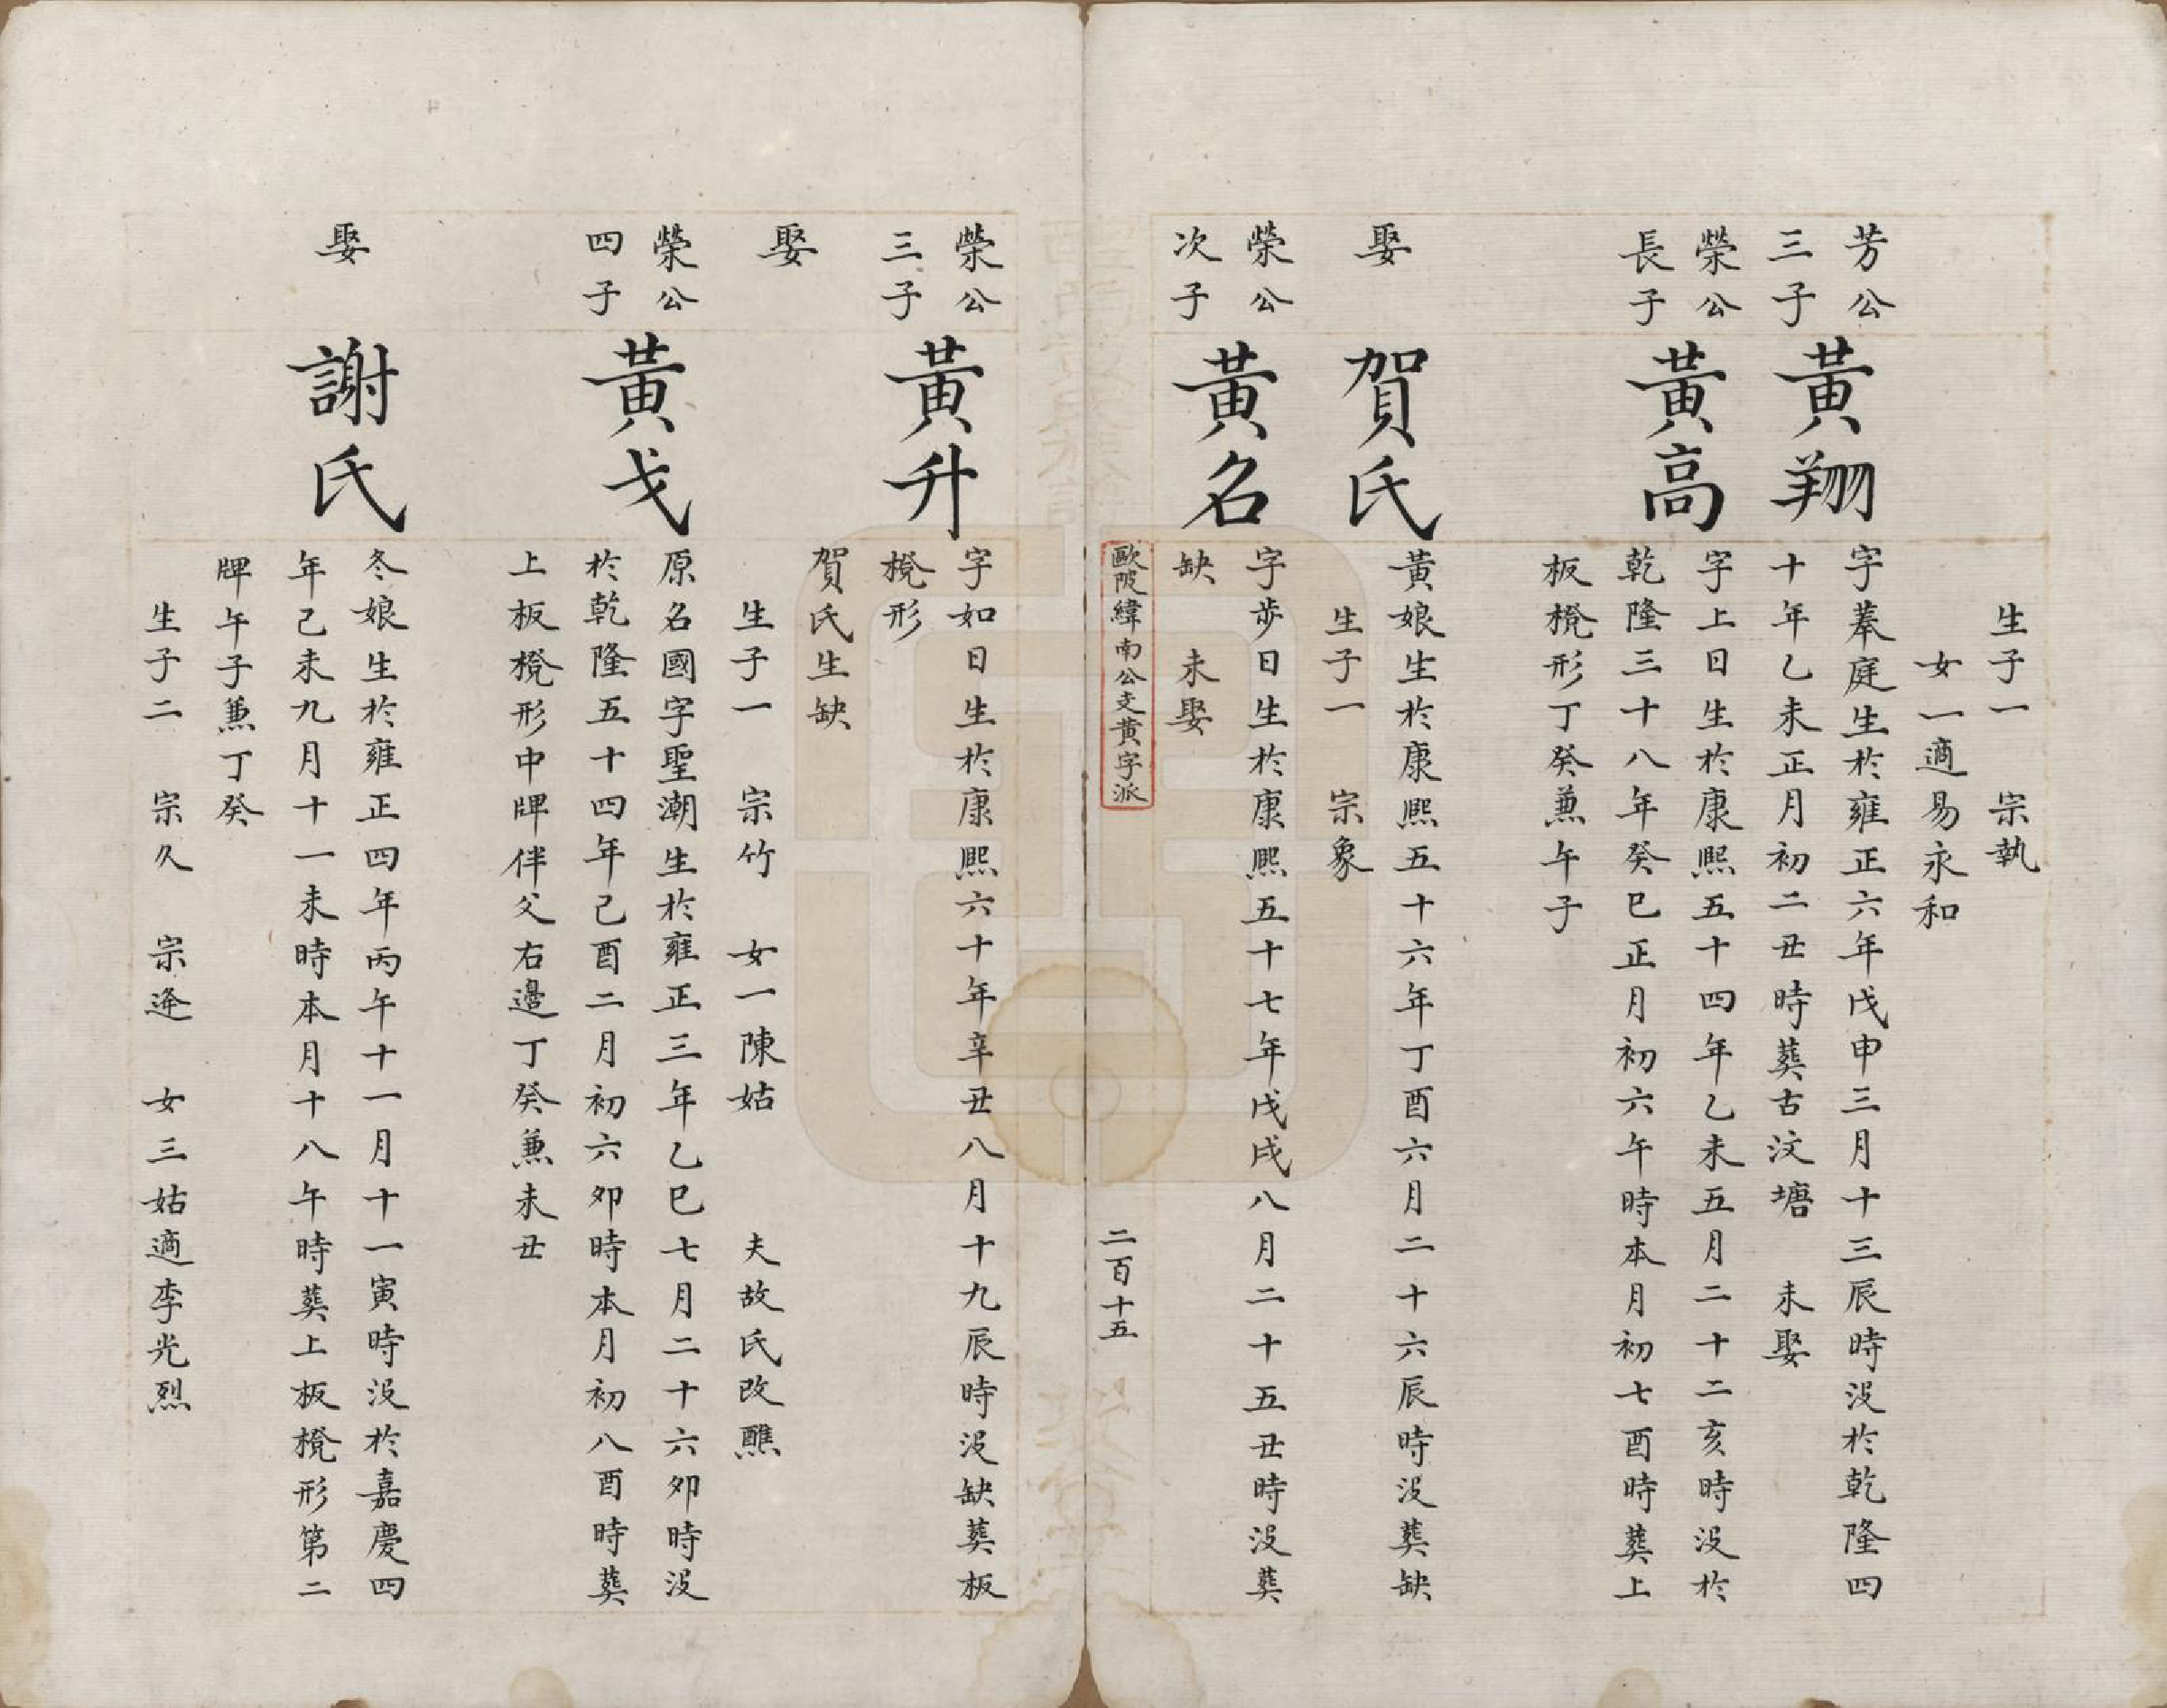 生子一 宗執
女一適易永和
芳公
三子
黃翔
字菶庭生於雍正六年戊申三月十三辰時沒於乾隆四
十年乙未正月初二丑時葬古汶塘 未娶
榮公
長子
黃高
字上日生於康熙五十四年乙未五月二十二亥時沒於
乾隆三十八年癸巳正月初六午時本月初七酉時葬上
板櫈形丁癸兼午子
娶
賀氏
黃娘生於康熙五十六年丁酉六月二十六辰時沒葬缺
生子一 宗象
榮公
次子
黃名
字步日生於康熙五十七年戊戌八月二十五丑時沒葬
缺 未娶
歐陂緯南公支黃字派
二百十五
榮公
三子
黃升
字如日生於康熙六十年辛丑八月十九辰時沒缺葬板
櫈形
娶
賀氏生缺
生子一 宗竹 女一陳姑 夫故氏改醮
榮公
四子
黃戈
原名國字聖潮生於雍正三年乙巳七月二十六卯時沒
於乾隆五十四年己酉二月初六卯時本月初八酉時葬
上板櫈形中牌伴父右邊丁癸兼未丑
娶
謝氏
冬娘生於雍正四年丙午十一月十一寅時沒於嘉慶四
年己未九月十一未時本月十八午時葬上板櫈形第二
牌午子兼丁癸
生子二 宗久 宗逄 女三姑適李光烈